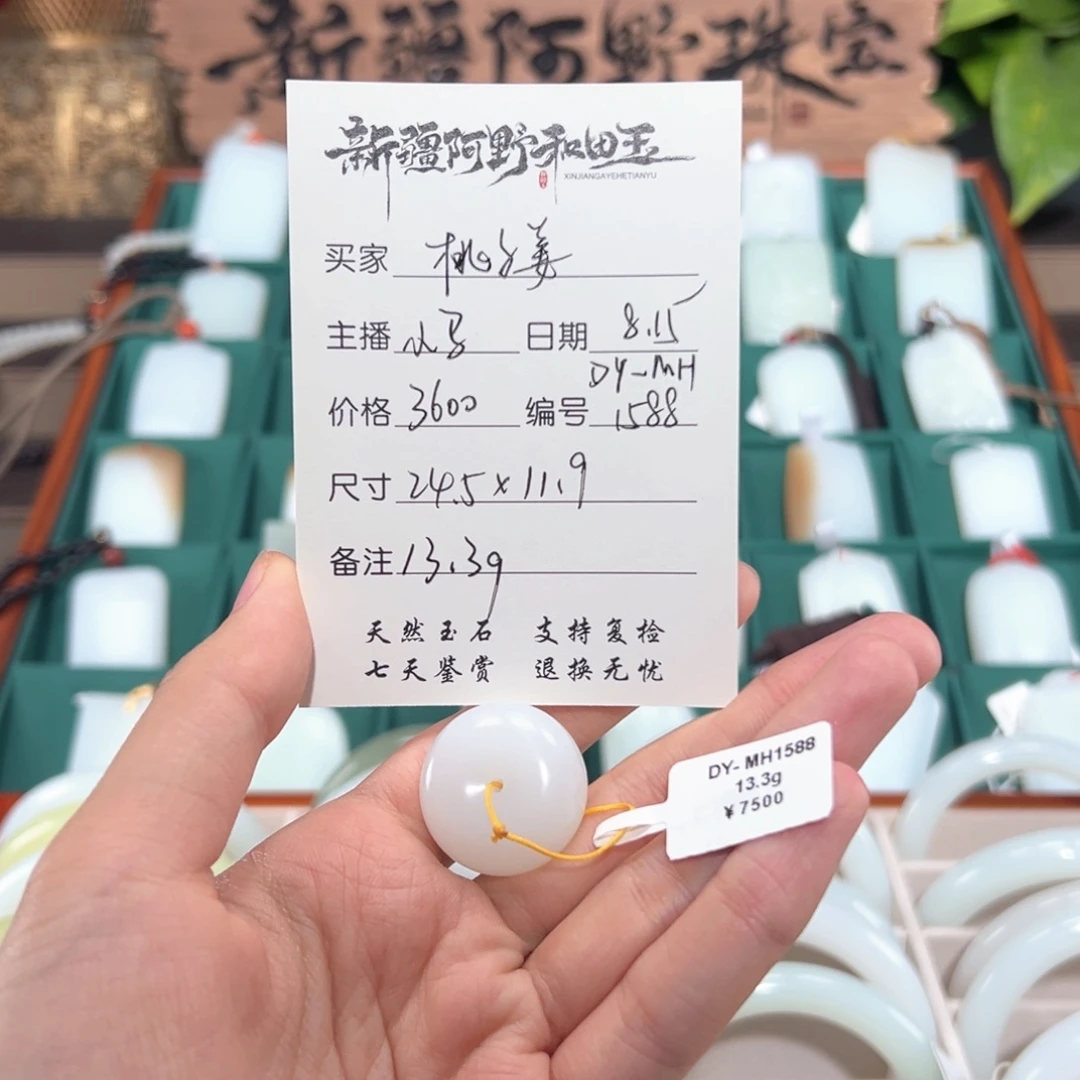 新疆阿野珠宝
新疆阿野和田玉
XINJIANGAYEHETIANYU
买家 桃子姜
主播 小马 日期 8.15
价格 3600 编号 DY-MH
1588
尺寸 24.5×11.9
备注 13.3g
天然玉石 支持复检
七天鉴赏 退换无忧
DY- MH1588
13.3g
¥7500